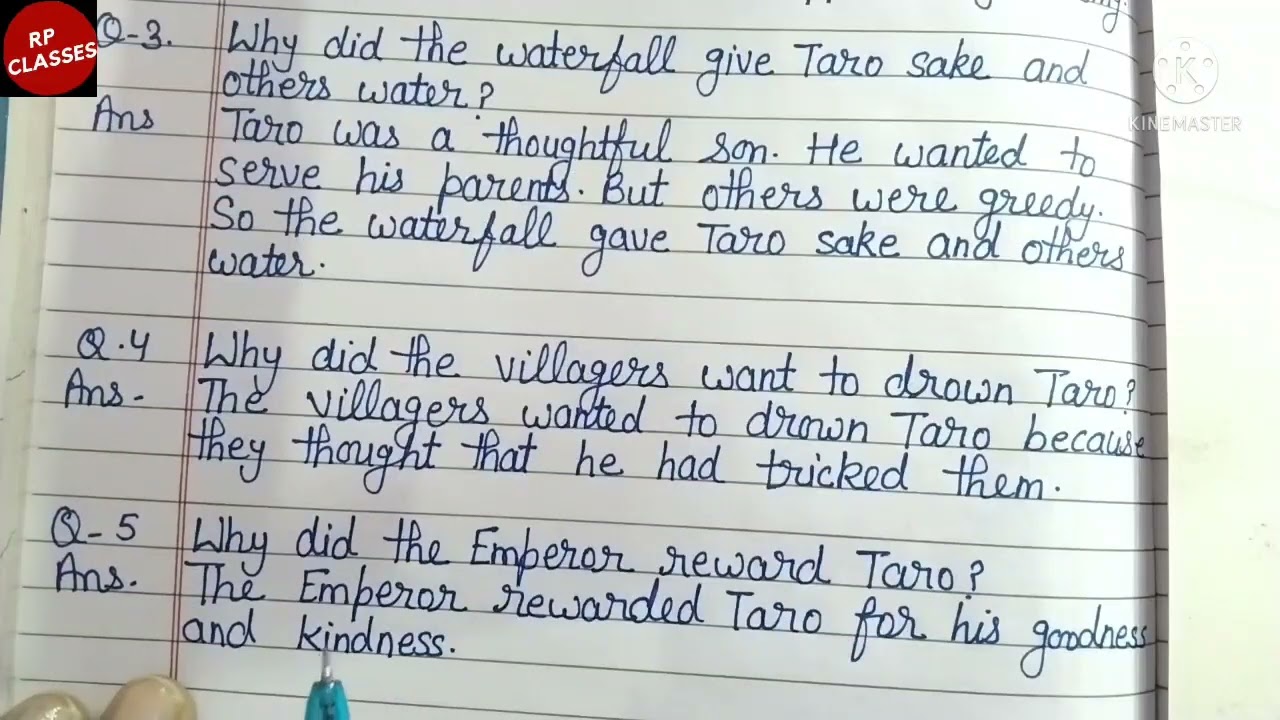 RP
CLASSES
KINEMASTER
Q-3. Why did the waterfall give Taro sake and
others water?
Ans Taro was a thoughtful son. He wanted to
serve his parents. But others were greedy.
So the waterfall gave Taro sake and others
water.
Q.4 Why did the villagers want to drown Taro?
Ans. The villagers wanted to drown Taro because
they thought that he had tricked them.
Q-5 Why did the Emperor reward Taro?
Ans. The Emperor rewarded Taro for his goodness
and kindness.